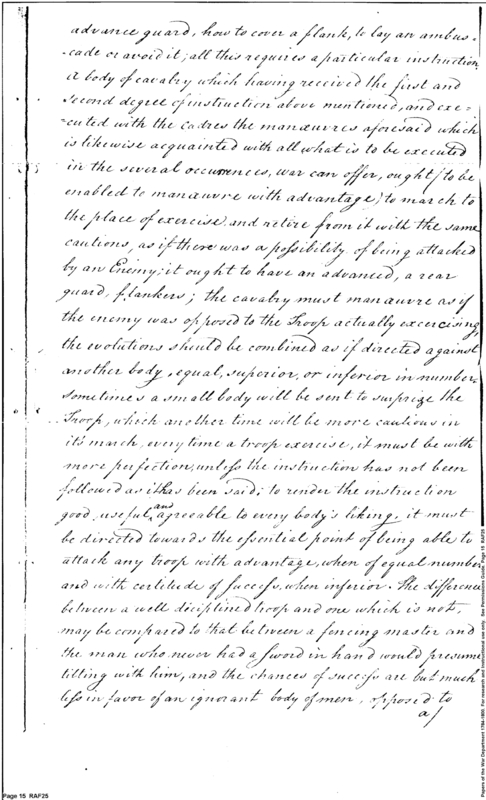 advance guard, how to cover a flank, to lay an ambus=
=cade or avoid it; all this requires a particular instruction
A body of cavalry which having received the first and
second degree of instruction above mentioned, and exe=
=cuted with the cadres the manœuvres aforesaid which
is likewise acquainted with all what is to be executed
in the several occurrences, war can offer, ought (to be
enabled to manœuvre with advantage) to march to
the place of exercise and retire from it with the same
cautions, as if there was a possibility of being attacked
by an Enemy; it ought to have an advanced, a rear
guard, flankers; the cavalry must manœuvre as if
the enemy was opposed to the Troop actually excercising
the evolutions should be combined as if directed against
another body, equal, superior, or inferior in number.
sometimes a small body will be sent to surprize the
Troop, which another time will be more cautious in
it's march, every time a troop exercise, it must be with
more perfection, unless the instruction has not been
followed as it has been said; to render the instruction
good, useful, and agreeable to every body's liking, it must
be directed towards the essential point of being able to
attack any troop with advantage, when of equal number
and with certitude of success, when inferior. The difference
between a well deciplined troop and one which is not,
may be compared to that between a fencing master and
the man who never had a sword in hand would presume
tilting with him, and the chances of success are but much
less in favor of an ignorant body of men, opposed to
a/
Page 15 RAF25
Papers of the War Department 1784-1800. For research and instructional use only. See Permissions Guide. Page 15 RAF25